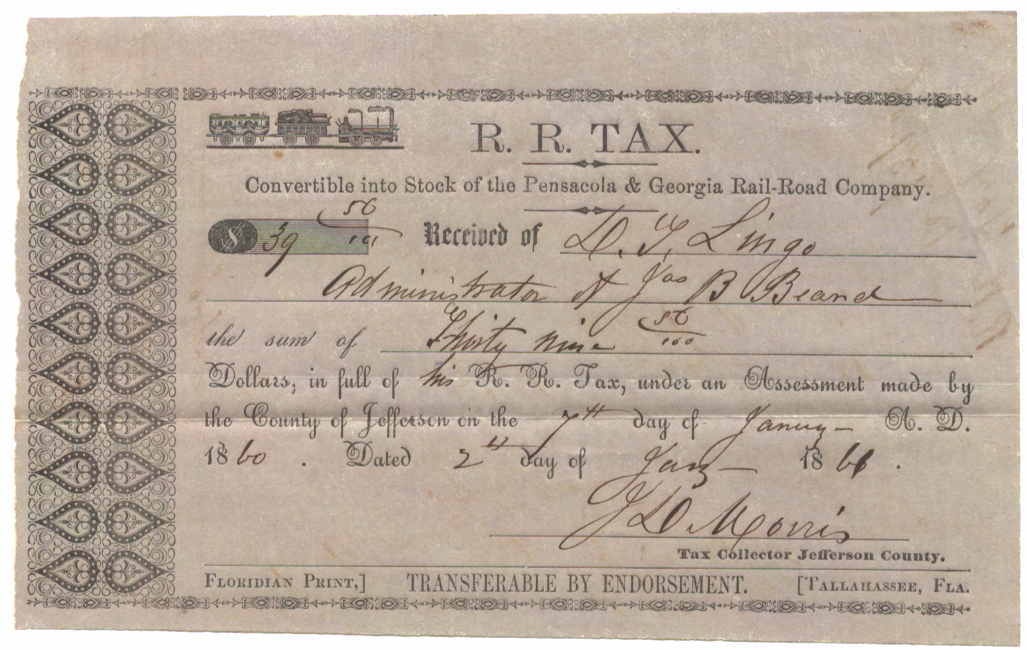 R. R. TAX.
Convertible into Stock of the Pensacola & Georgia Rail-Road Company.
$ 39 56/100 Received of D. T. Lingo
Administrator of Jas B Beard
the sum of Thirty nine 56/100
Dollars, in full of his R. R. Tax, under an Assessment made by
the County of Jefferson on the 7th day of January A. D.
1860. Dated 2d day of Jany 1861.
J D Morris
Tax Collector Jefferson County.
FLORIDIAN PRINT,] TRANSFERABLE BY ENDORSEMENT. [TALLAHASSEE, FLA.